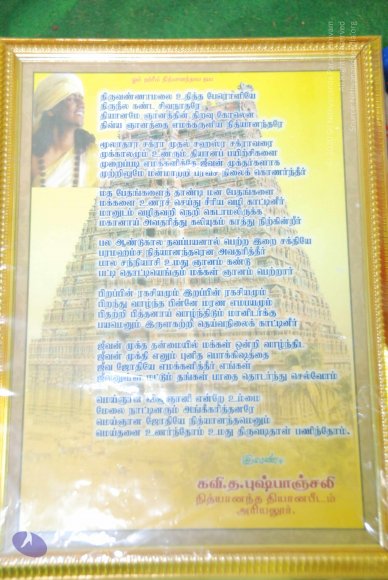 திருவண்ணாமலை உதித்த பேரொளியே
திருநீல கண்ட சிவநாதரே
தியானமே ஞானத்தின் திறவு கோலென
திவ்ய ஞானத்தை எமக்கருளிய நித்யானந்தரே
மூலாதார சக்ரா முதல் சஹஸ்ர சக்ராவரை
முக்காலமும் உணரும் தியானப் பயிற்சிகளை
முறைப்படி எமக்களித்தே ஜீவன் முக்தர்களாக
முற்றிலுமே நிலைக் கொணர்ந்தீர்
மத பேதங்களைத் தாண்டி மன பேதங்களை
மக்களை உணரச் செய்து சீரிய வழி காட்டினீர்
மானுடம் வழிதவறி நெறி கெடாமலிருக்க
மகானாய் அவதரித்து கலியுகம் காத்து நிற்கின்றீர்
பல ஆண்டுகால தவப்பயனால் பெற்ற இறை சக்தியே
பரமஹம்ச நித்யானந்தரென அவதரித்தீர்
பால சந்நியாசி உமது ஞானம் கண்டு
பட்டி தொட்டியெங்கும் மக்கள் ஞானம் பெற்றார்
பிறப்பின் ரகசியமும் இறப்பின் ரகசியமும்
பிறந்து வாழ்ந்த பின்னே மரண எமபயமும்
பிதற்றி பித்தனாய் வாழ்ந்திடும் மானிடர்க்கு
பயமெனும் இருளகற்றி தெய்வநிலைக் காட்டினீர்
ஜீவன் முக்த தன்மையில் மக்கள் ஒன்றி வாழ்ந்திட
ஜீவன் முக்தி எனும் புனித பொக்கிஷத்தை
ஜீவ ஜோதியே எமக்களித்தீர் எங்கள்
தங்கள் பாதை தொடர்ந்து செல்வோம்
மெய்ஞான ஞானி என்றே உம்மை
மேலை நாட்டினரும் அங்கீகரித்தனரே
மெய்ஞான ஜோதியே நித்யானந்தமெனும்
மெய்தனை உணர்ந்தோம் உமது திருவடிதாள் பணிந்தோம்.
இவண்
கவி.த.புஷ்பாஞ்சலி
நித்யானந்த தியானபீடம்
அரியலூர்.